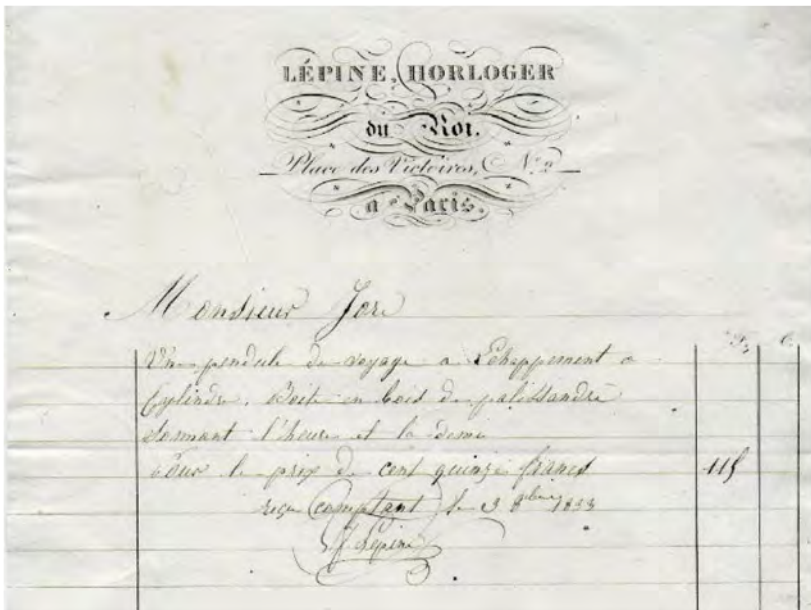 LÉPINE, HORLOGER
du Roi.
Place des Victoires, N.º 2
à Paris.
Monsieur Jore
F. C.
Une pendule de voyage a Echappement a
Cylindre. Boite en bois de palissandre
sonnant l'heure et la demi
Pour le prix de cent quinze francs 115
reçu comptant le 3 1833
Lépine